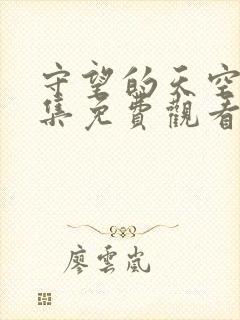 守望的天空
集免費觀看
廖雲嵐